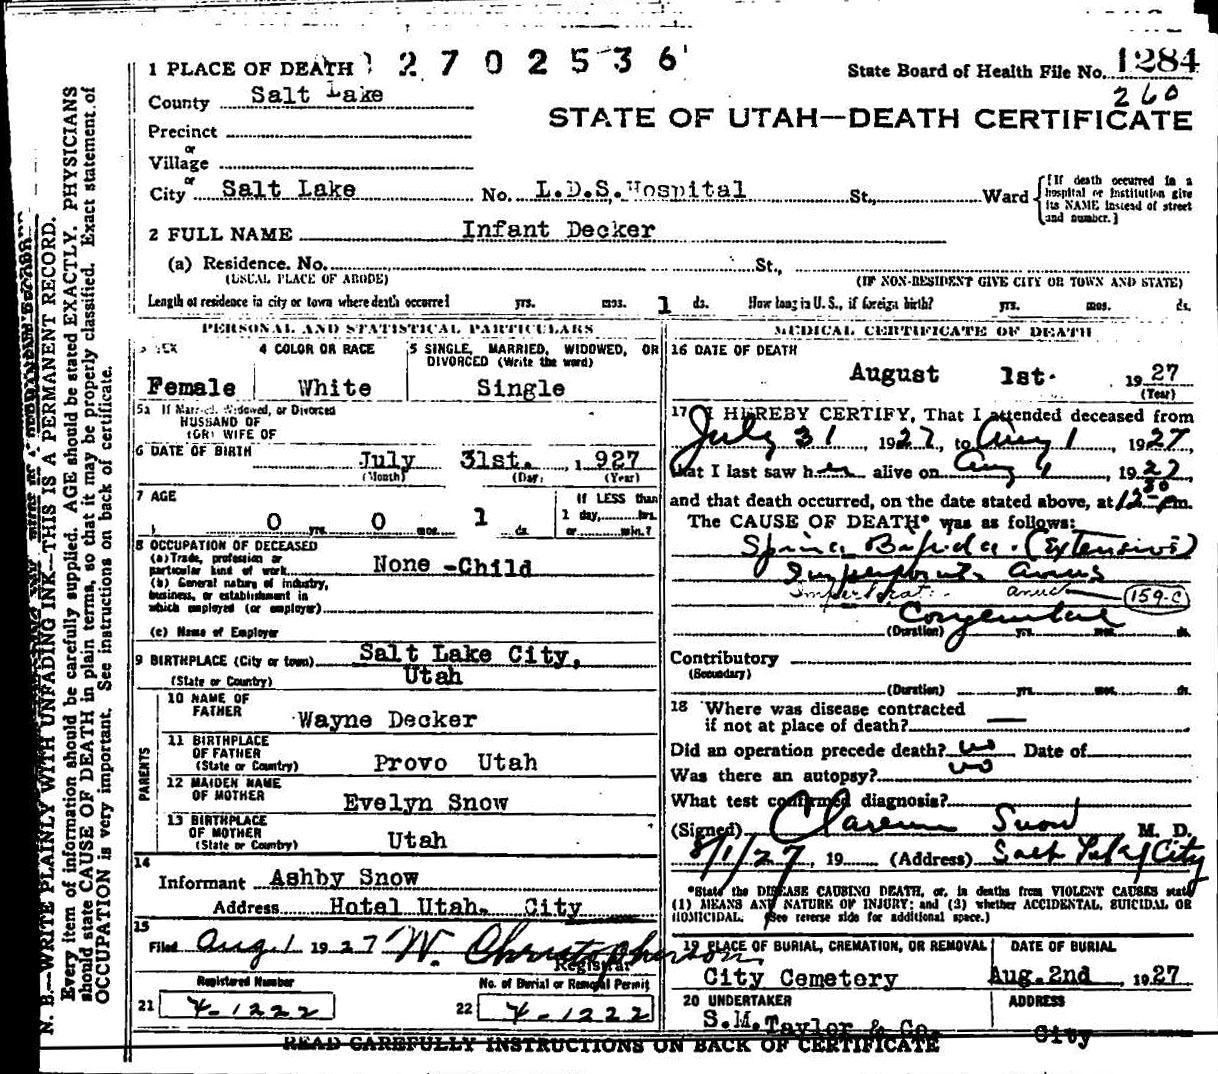 1 PLACE OF DEATH 2702536
State Board of Health File No. 1284
260
County Salt Lake
STATE OF UTAH—DEATH CERTIFICATE
Precinct
or
Village
or
City Salt Lake No. L.D.S. Hospital St., Ward
[If death occurred in a hospital or institution give its NAME instead of street and number.]
2 FULL NAME Infant Decker
(a) Residence. No. St.,
(USUAL PLACE OF ABODE) (IF NON-RESIDENT GIVE CITY OR TOWN AND STATE)
Length of residence in city or town where death occurred yrs. mos. 1 ds. How long in U. S., if foreign birth? yrs. mos. ds.
PERSONAL AND STATISTICAL PARTICULARS
3 SEX
Female
4 COLOR OR RACE
White
5 SINGLE, MARRIED, WIDOWED, OR
DIVORCED (Write the word)
Single
5a If Married, Widowed, or Divorced
HUSBAND OF
(OR) WIFE OF
6 DATE OF BIRTH July 31st. , 1927
(Month) (Day) (Year)
7 AGE
0 yrs. 0 mos. 1 ds.
If LESS than
1 day, hrs.
or min.?
8 OCCUPATION OF DECEASED
(a) Trade, profession or
particular kind of work None -Child
(b) General nature of industry,
business, or establishment in
which employed (or employer)
(c) Name of Employer
9 BIRTHPLACE (City or town) Salt Lake City,
(State or Country) Utah
PARENTS
10 NAME OF
FATHER Wayne Decker
11 BIRTHPLACE
OF FATHER
(State or Country) Provo Utah
12 MAIDEN NAME
OF MOTHER Evelyn Snow
13 BIRTHPLACE
OF MOTHER
(State or Country) Utah
14
Informant Ashby Snow
Address Hotel Utah. City
15
Filed Aug 1 1927 W. Christopherson
Registrar
Registered Number No. of Burial or Removal Permit
21 4-1222 22 4-1222
MEDICAL CERTIFICATE OF DEATH
16 DATE OF DEATH
August 1st. 1927
(Year)
17 I HEREBY CERTIFY, That I attended deceased from
July 31, 1927, to Aug 1, 1927,
that I last saw her alive on Aug 1, 1927
and that death occurred, on the date stated above, at 12 30 pm.
The CAUSE OF DEATH* was as follows:
Spina Bifida. (Extensive)
Imperforate Anus
Imperforate anus 159-C
Congenital
(Duration) yrs. mos. ds.
Contributory
(Secondary)
(Duration) yrs. mos. ds.
18 Where was disease contracted
if not at place of death? —
Did an operation precede death? no Date of
Was there an autopsy? no
What test confirmed diagnosis?
(Signed) Clarence Snow M. D.
8/1/27, 19 (Address) Salt Lake City
*State the DISEASE CAUSING DEATH, or, in deaths from VIOLENT CAUSES state
(1) MEANS AND NATURE OF INJURY; and (2) whether ACCIDENTAL, SUICIDAL OR
HOMICIDAL. (See reverse side for additional space.)
19 PLACE OF BURIAL, CREMATION, OR REMOVAL
City Cemetery
DATE OF BURIAL
Aug. 2nd , 1927
20 UNDERTAKER
S.M. Taylor & Co.
ADDRESS
City
READ CAREFULLY INSTRUCTIONS ON BACK OF CERTIFICATE
N. B.—WRITE PLAINLY WITH UNFADING INK—THIS IS A PERMANENT RECORD.
Every item of information should be carefully supplied. AGE should be stated EXACTLY. PHYSICIANS
should state CAUSE OF DEATH in plain terms, so that it may be properly classified. Exact statement of
OCCUPATION is very important. See instructions on back of certificate.